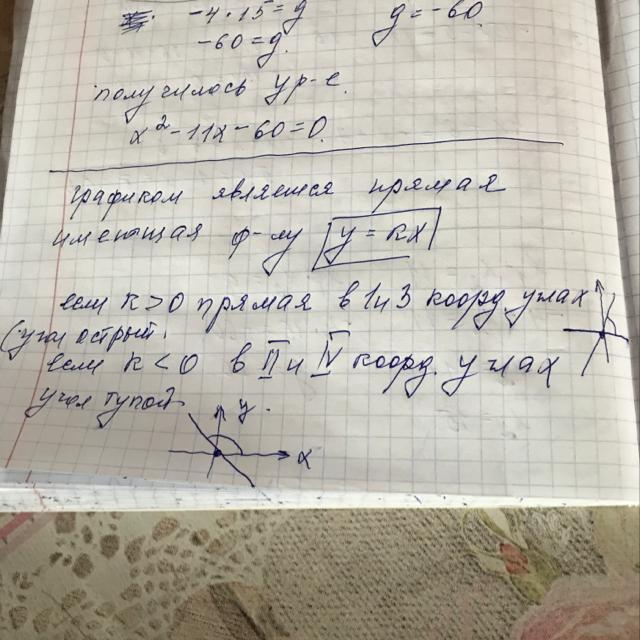 -4·15=g g=-60
-60=g.
получилось ур-е.
x²-11x-60=0.
графиком является прямая
имеющая ф-лу y=kx
если k>0 прямая в 1 и 3 коорд углах
(угол острый.
если k<0 в II и IV коорд. углах
угол тупой
y.
x